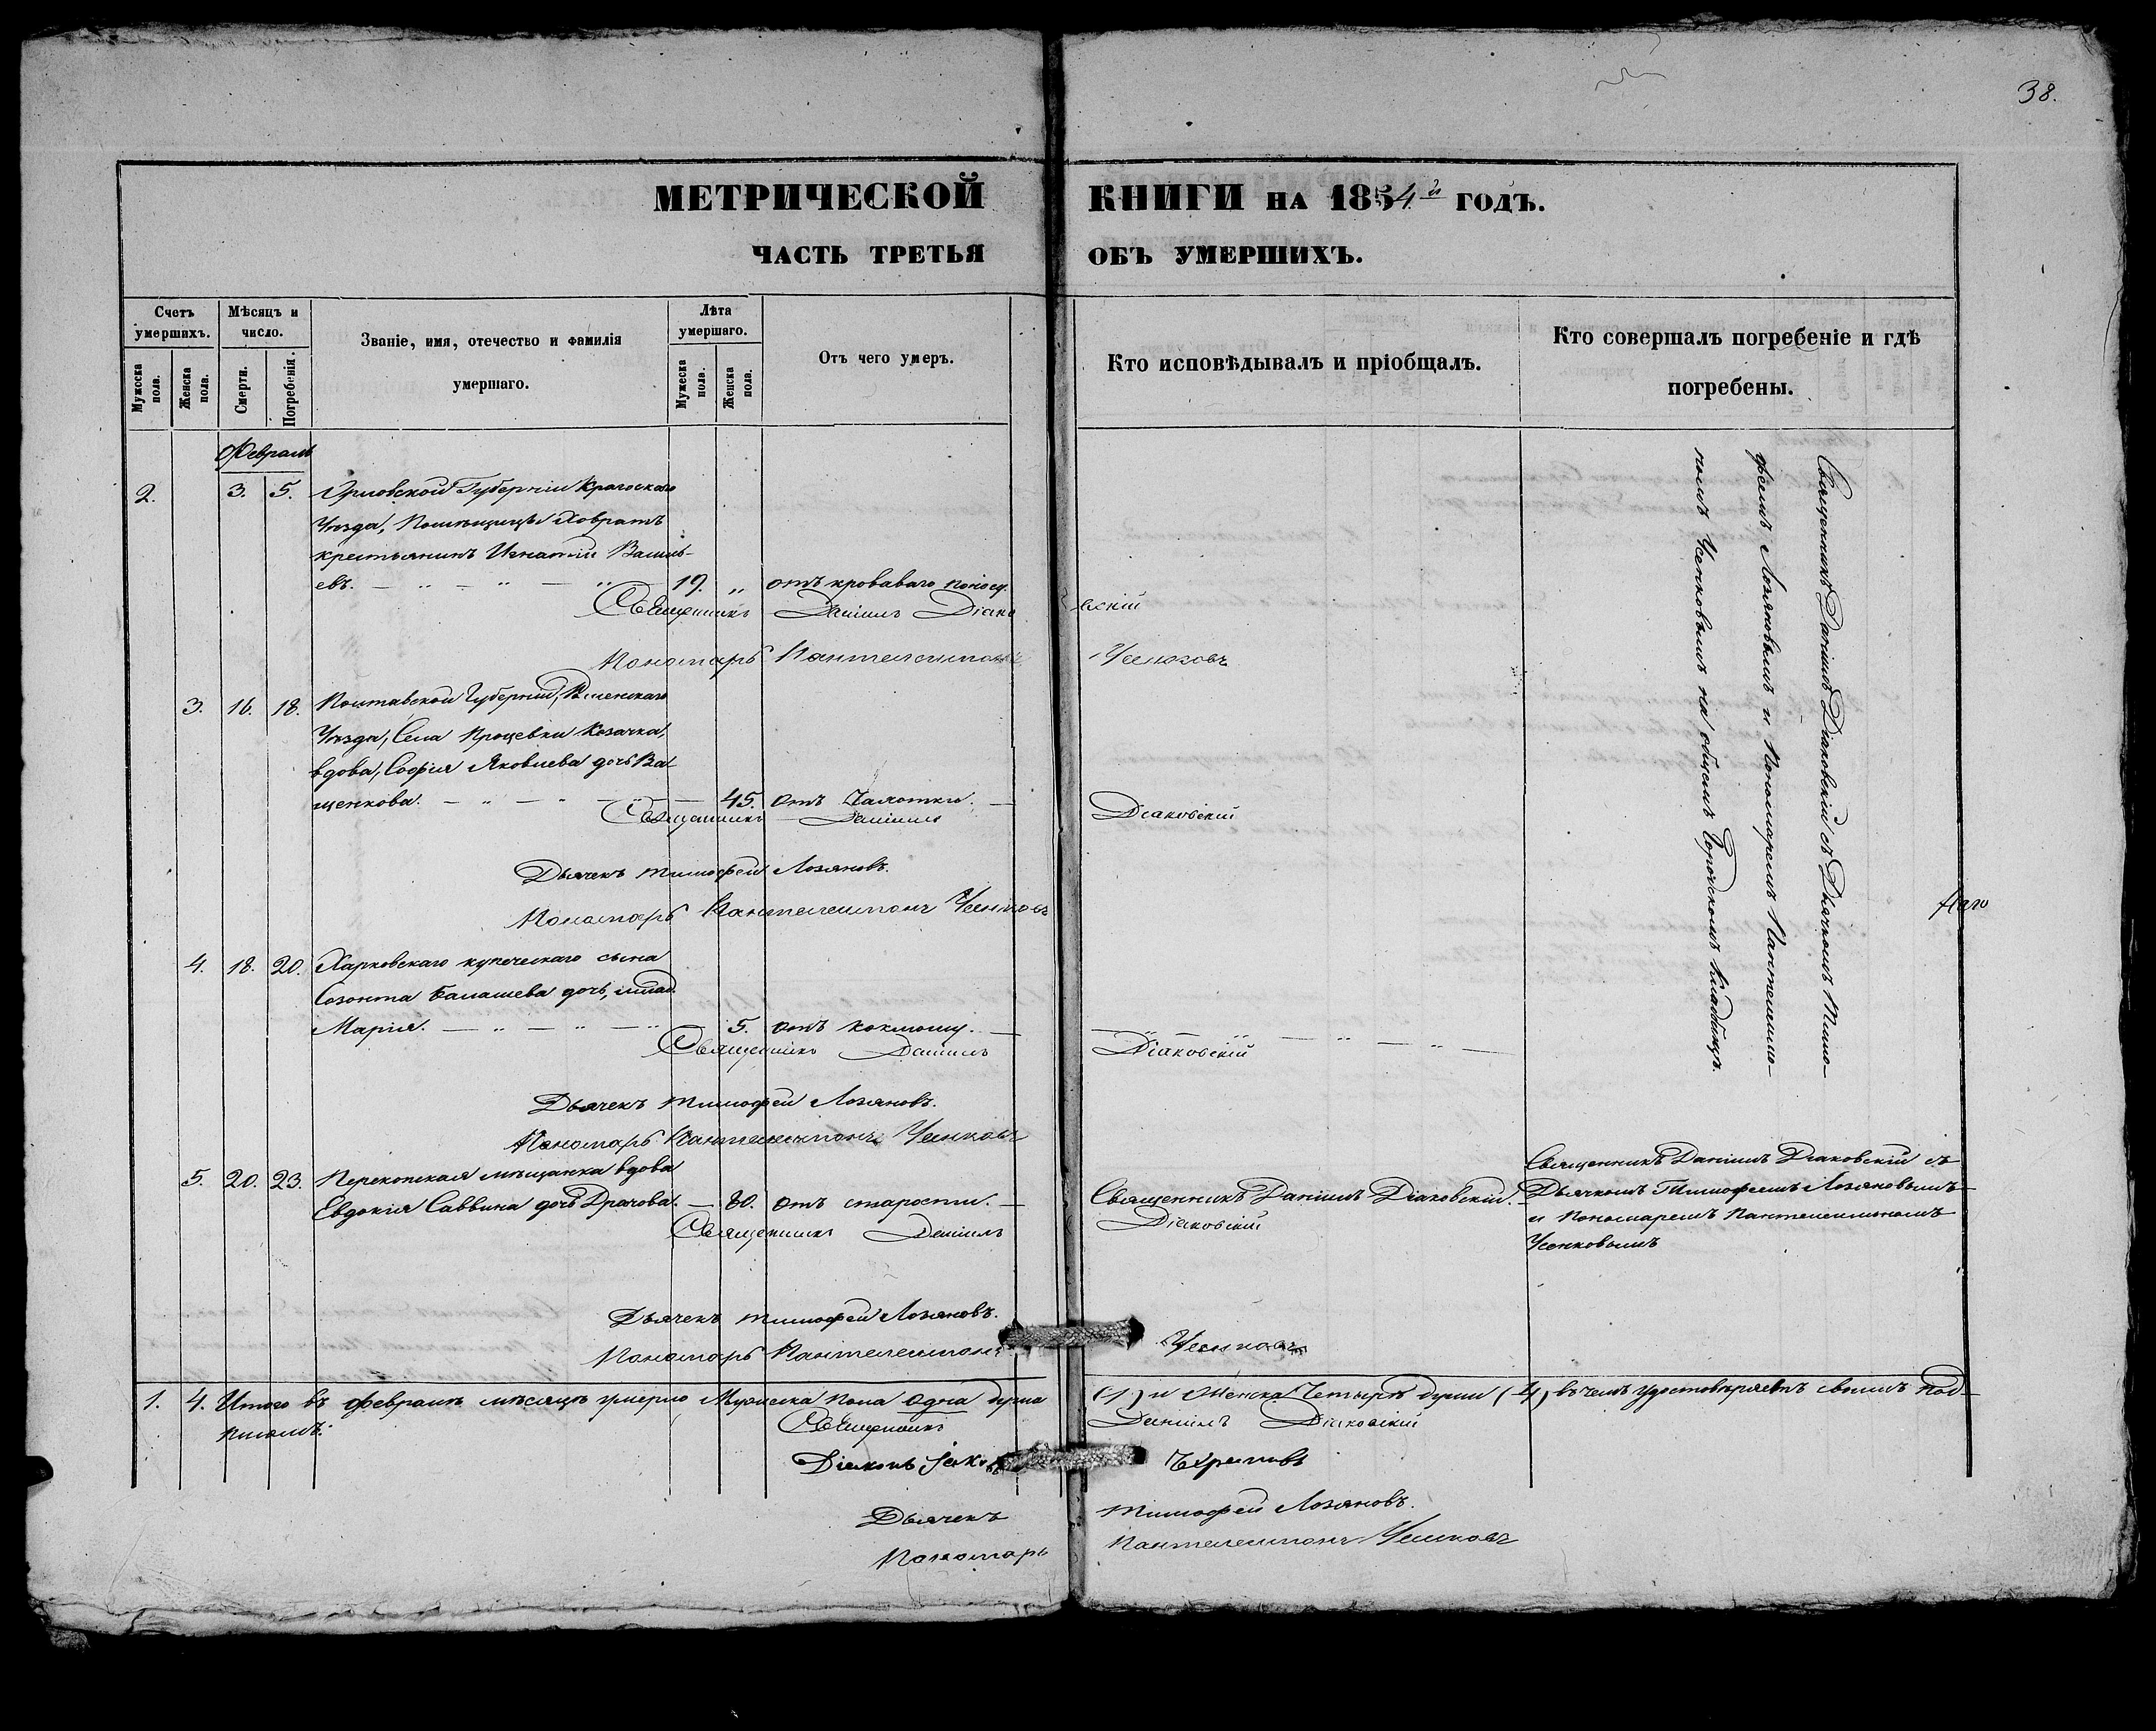 38.
МЕТРИЧЕСКОЙ КНИГИ НА 1854й ГОДЪ.
ЧАСТЬ ТРЕТЬЯ ОБЪ УМЕРШИХЪ.
Счетъ умершихъ.
Мужеска пола.
Женска пола.
Мѣсяцъ и число.
Смерти.
Погребенія.
Званіе, имя, отечество и фамилія
умершаго.
Лѣта умершаго.
Мужеска пола.
Женска пола.
Отъ чего умеръ.
Кто исповѣдывалъ и пріобщалъ.
Кто совершалъ погребеніе и гдѣ
погребены.
Февраль
2. 3. 5. Орловской Губерніи
Уѣзда, Помѣщицы
крестьянинъ Игнатій Василь-
евъ. 19. „ отъ кроваваго поноса.
Священникъ Даніилъ Діаковскій
Пономарь Пантелеимонъ Усенковъ
3. 16. 18. Полтавской Губерніи,
Уѣзда, Села Процевки Козачка,
вдова, Софія Яковлева дочь Ва-
щенкова. 45. Отъ Чахотки.
Священникъ Даніилъ Діаковскій
Дьячекъ Тимофей Лозяновъ.
Пономарь Пантелеимонъ Усенковъ
4. 18. 20. Харковскаго купеческаго сына
Созонта Балашева дочь, млад.
Марія. 5. отъ коклюшу.
Священникъ Даніилъ Діаковскій
Дьячекъ Тимофей Лозяновъ.
Пономарь Пантелеимонъ Усенковъ
Священникъ Даніилъ Діаковскій съ Дьячкомъ Тимо-
феемъ Лозяновымъ и Пономаремъ Пантелеимо-
номъ Усенковымъ на общемъ Городскомъ Кладбищѣ.
5. 20. 23. Перекопская мѣщанка вдова
Евдокія Саввина дочь Драчова. 80. Отъ старости. Священникъ Даніилъ Діаковскій.
Священникъ Даніилъ Діаковскій съ
Дьячкомъ Тимофеемъ Лозяновымъ
и Пономаремъ Пантелеимономъ
Усенковымъ
Священникъ Даніилъ Діаковскій
Дьячекъ Тимофей Лозяновъ.
Пономарь Пантелеимонъ Усенковъ
1. 4. Итого въ февралѣ мѣсяцѣ умерло Мужеска пола Одна душа (1) и Женска Четырѣ души (4) въ чемъ удостовѣряемъ своимъ под-
писомъ:
Священникъ Даніилъ Діаковскій
Діаконъ
Дьячекъ Тимофей Лозяновъ.
Пономарь Пантелеимонъ Усенковъ